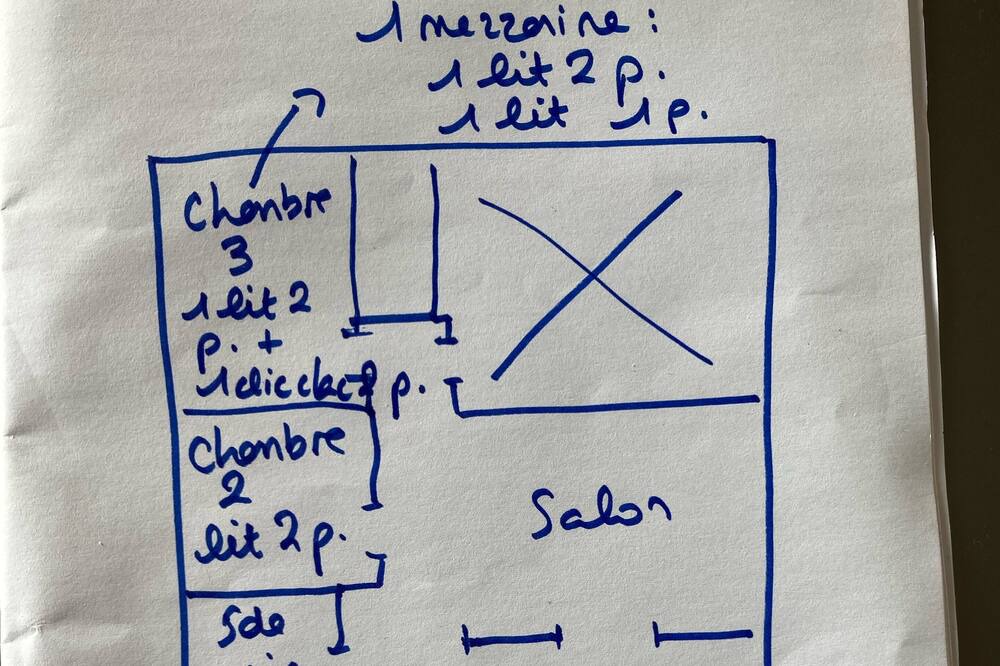 1 mezzanine :
1 lit 2 p.
1 lit 1 p.
Chambre
3
1 lit 2
p. +
1 clic clac 2 p.
Chambre
2
lit 2 p.
Salon
Sde